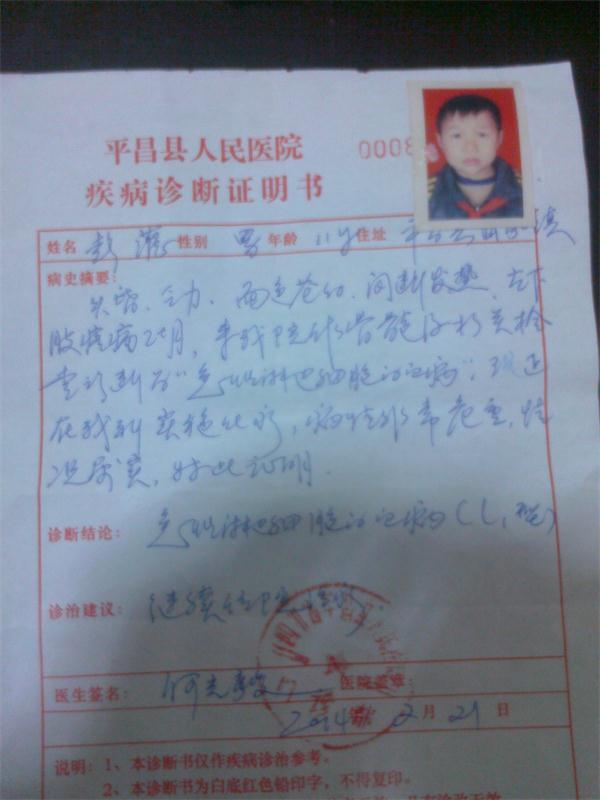 平昌县人民医院
0008
疾病诊断证明书
姓名 彭 性别 男 年龄 11岁 住址 平昌县
病史摘要:
头昏、乏力、面色苍白、间断发热、左下
肢疼痛2+月,来我院作骨髓及相关检
查诊断为“急性淋巴细胞白血病”,现正
在我科实施化疗,病情非常危重,情
况属实,特此证明.
诊断结论: 急性淋巴细胞白血病(L
诊治建议: 继续住院
医生签名: 何 医院盖章:
2014年2月21日
说明:1、本诊断书仅作疾病诊治参考。
2、本诊断书为白底红色铅印字,不得复印。